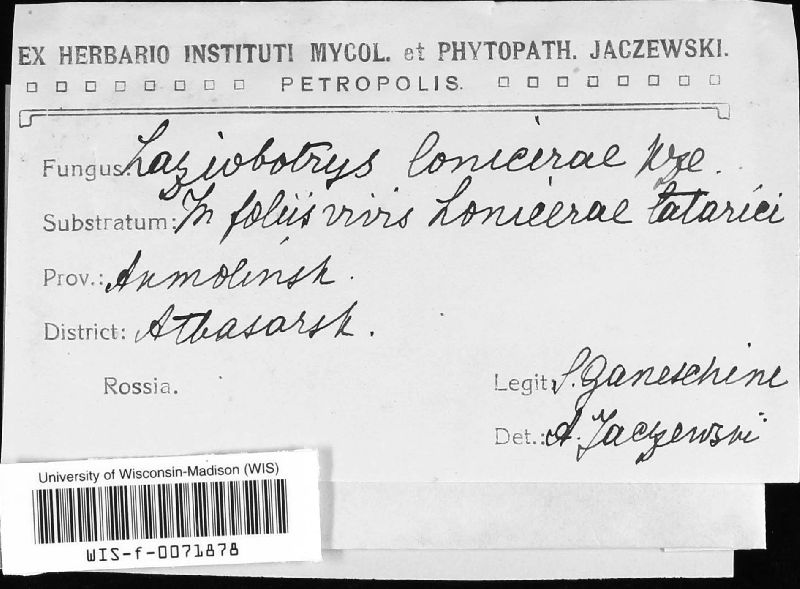 EX HERBARIO INSTITUTI MYCOL. et PHYTOPATH. JACZEWSKI.
PETROPOLIS.
Fungus: Laziobotrys lonicirae Kze.
Substratum: In foliis vivis Lonicerae tatarici
Prov.: Akmolinsk.
District: Atbasarsk.
Rossia.
Legit: S. Ganeschine
Det.: A. Jaczewski
University of Wisconsin-Madison (WIS)
WIS-f-0071878